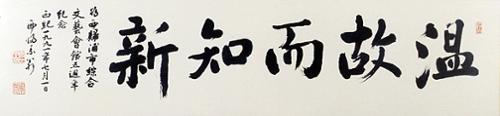 溫故而知新
為西歸浦市綜合
文藝會館五週年
紀念
西紀一九九一年七月一日